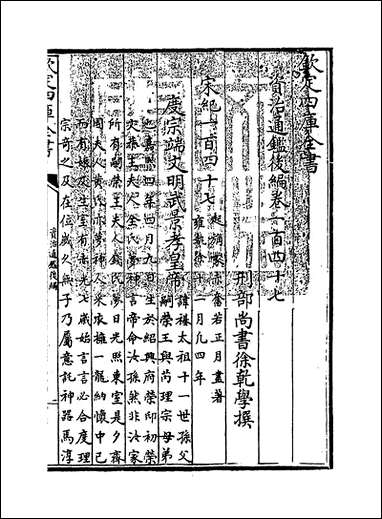 欽定四庫全書
資治通鑑後編卷一百四十七
刑部尚書徐乾學撰
宋紀一百四十七
起旃蒙赤奮若正月盡著
雍執徐十二月凡四年
度宗端文明武景孝皇帝
諱禥太祖十一世孫父
嗣榮王與芮理宗母弟
也嘉熙四年四月九日生於紹興府榮邸初榮
文恭王夫人全氏夢神言帝命汝孫然非汝家
所有嗣榮王夫人錢氏夢日光照東室是夕齊
國夫人黃氏亦夢神人采衣擁一龍納懷中已
而有娠及生室有赤光七歲始言言必合度理
宗奇之及在位歲久無子乃屬意託神器焉淳
欽定四庫全書
資治通鑑後編